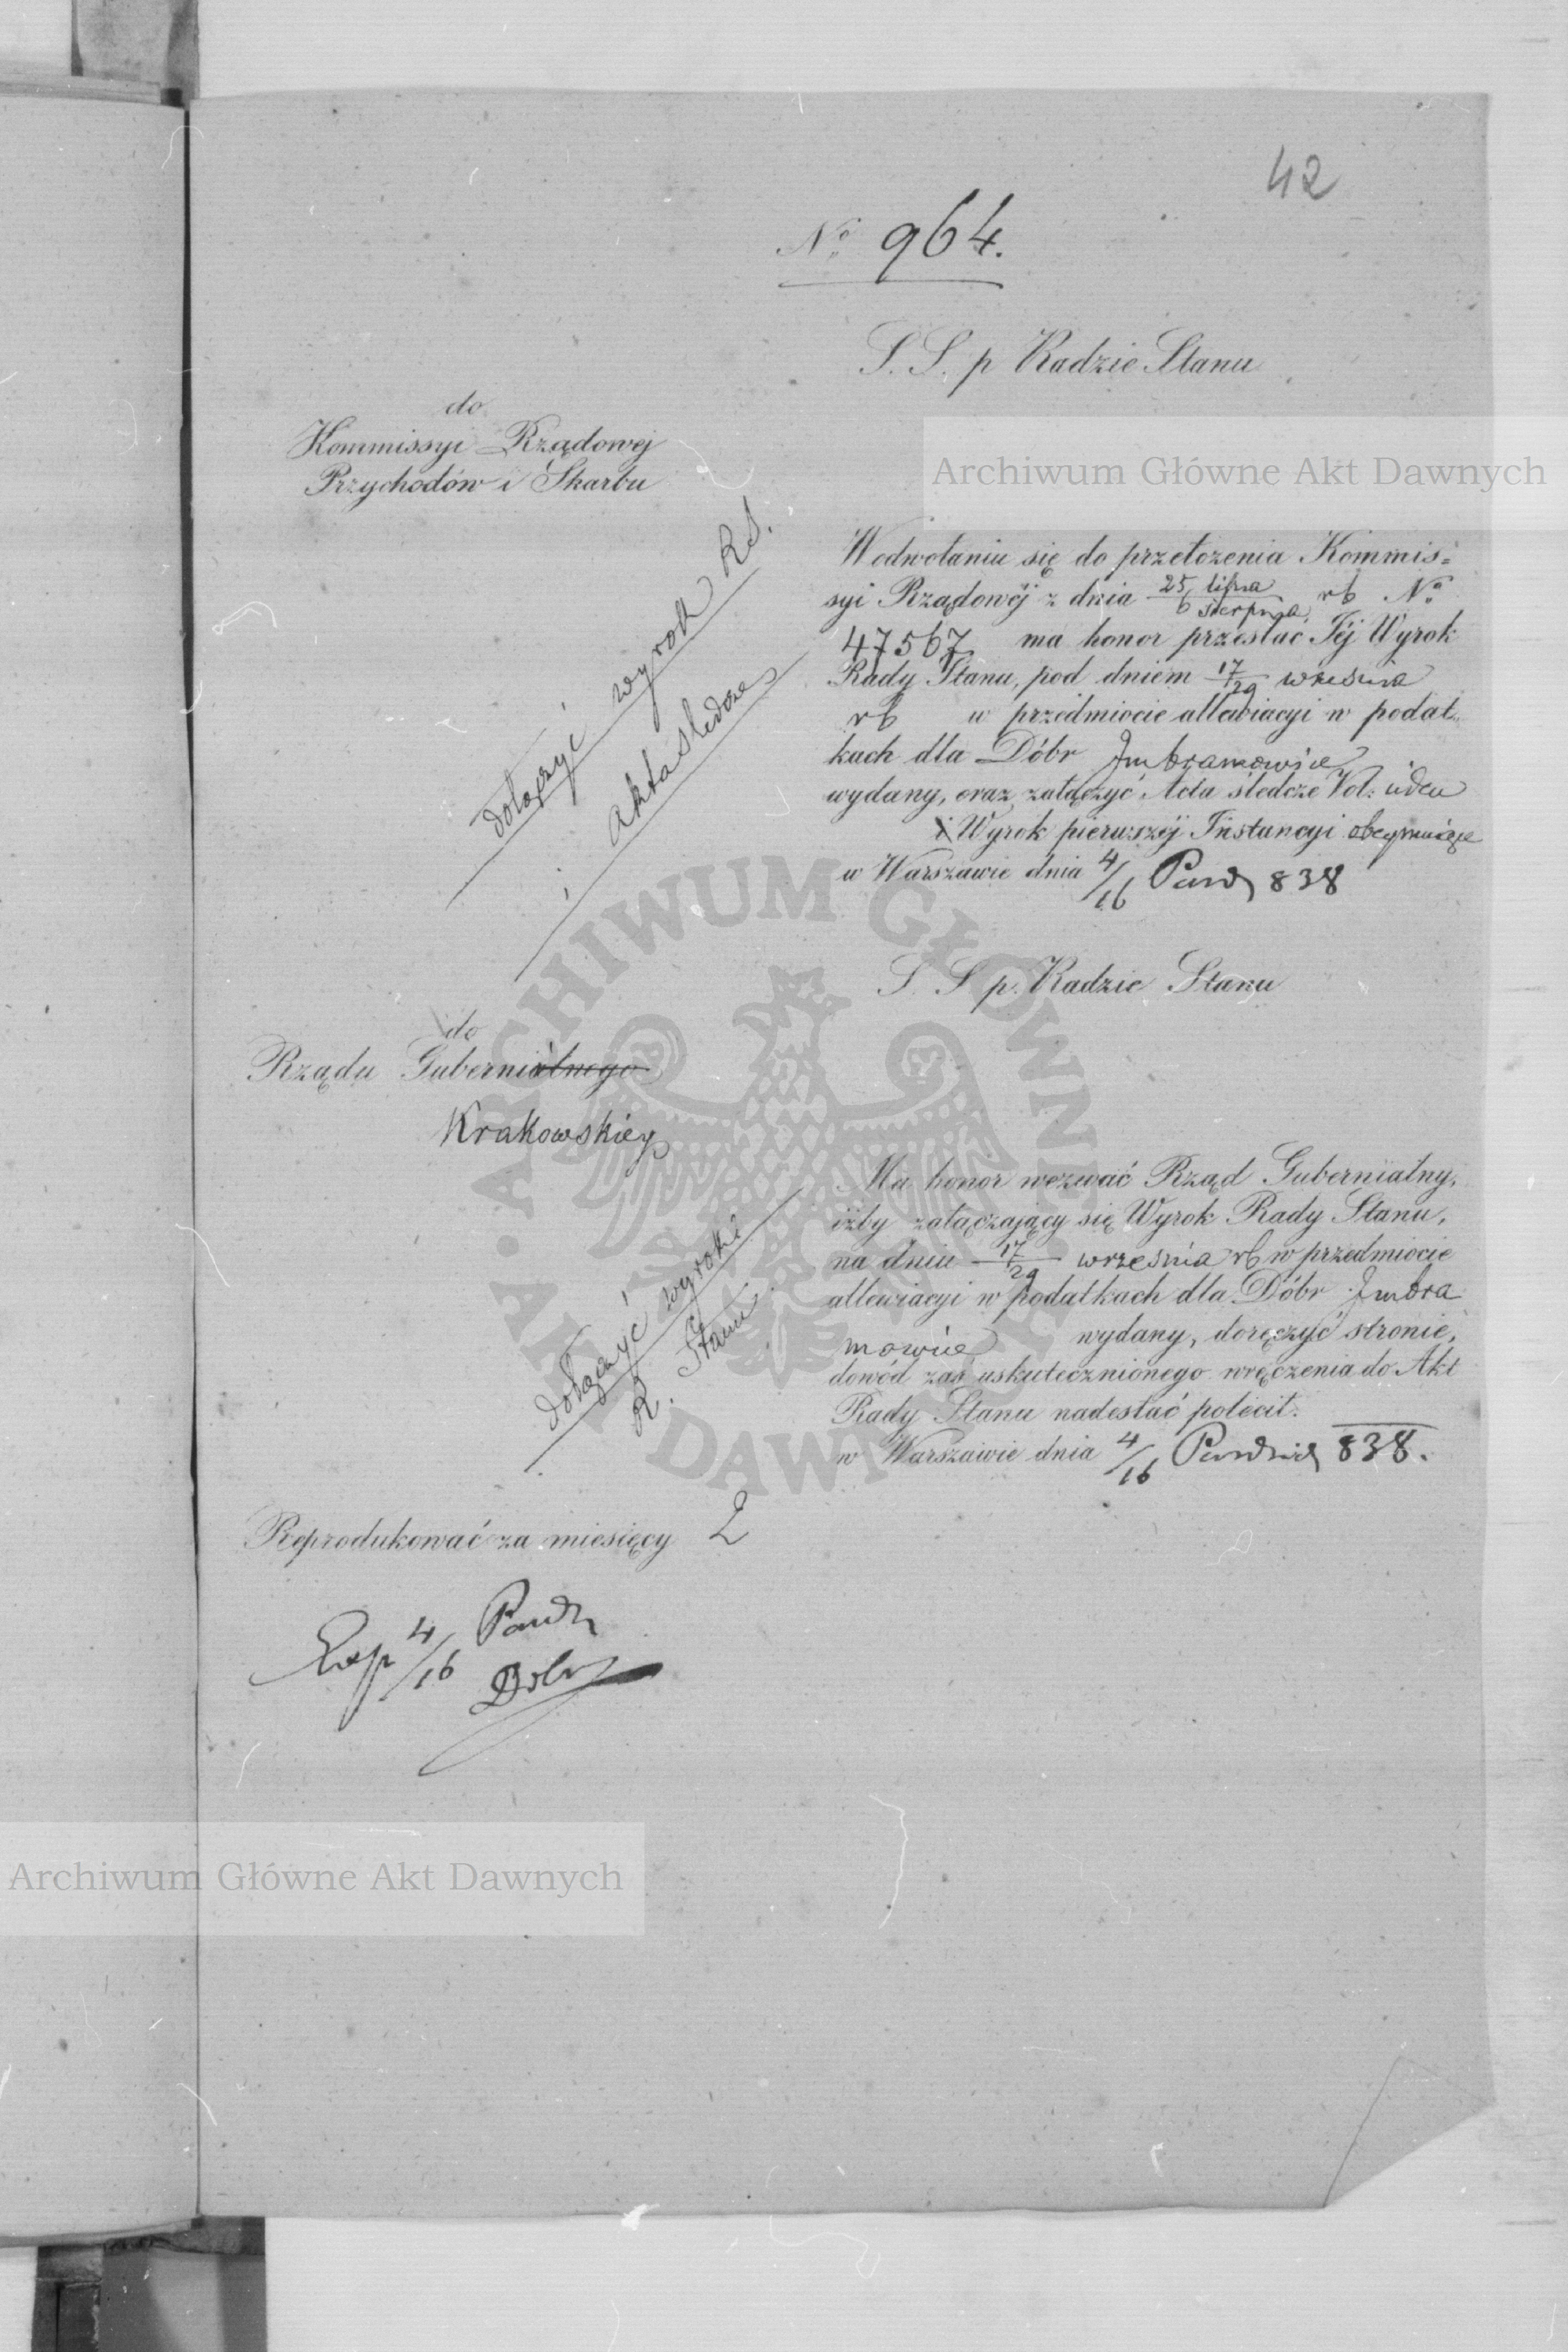 42
No 964.
S. S. p Radzie Stanu
do
Kommissyi Rządowej
Przychodów i Skarbu
dołączyć wyrok RS.
i akta śledcze
W odwołaniu się do przełożenia Kommis=
syi Rządowéj z dnia 25 lipca / 6 sierpnia rb No
47567 ma honor przesłać Jéj Wyrok
Rady Stanu, pod dniem 17/29 września
rb w przedmiocie allewiacyi w podat=
kach dla Dóbr Imbramowice
wydany, oraz załączyć Acta śledcze Vol:
i Wyrok pierwszéj Instancyi obeymuiące
w Warszawie dnia 4/16 Pazd 838
S. S p. Radzie Stanu
do
Rządu Gubernialnego
Krakowskiey
dołączyć wyrok
R. Stanu
Ma honor wezwać Rząd Gubernialny,
iżby załączający się Wyrok Rady Stanu,
na dniu 17/29 września rb w przedmiocie
allewiacyi w podatkach dla Dóbr Imbra
mowice wydany, doręczyć stronie,
dowód zaś uskutecznionego wręczenia do Akt
Rady Stanu nadesłać polecił.
w Warszawie dnia 4/16 838.
Reprodukować za miesięcy 2
Exp 4/16 Pazd
Archiwum Główne Akt Dawnych
Archiwum Główne Akt Dawnych
ARCHIWUM GŁÓWNE AKT DAWNYCH